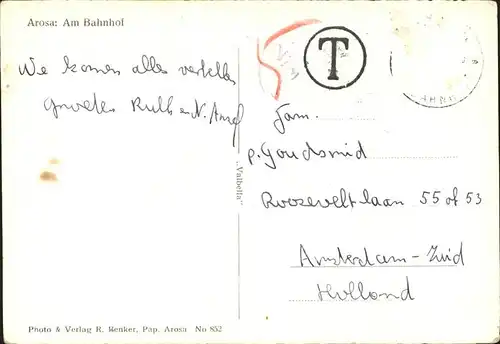 Arosa: Am Bahnhof
We komen alles vertellen
Groeten Ruth en N.
T
Fam.
p. Goudsmid
Rooseveltlaan 55 of 53
Amsterdam-Zuid
Holland
„Valbella"
Photo & Verlag R. Renker, Pap. Arosa No 852